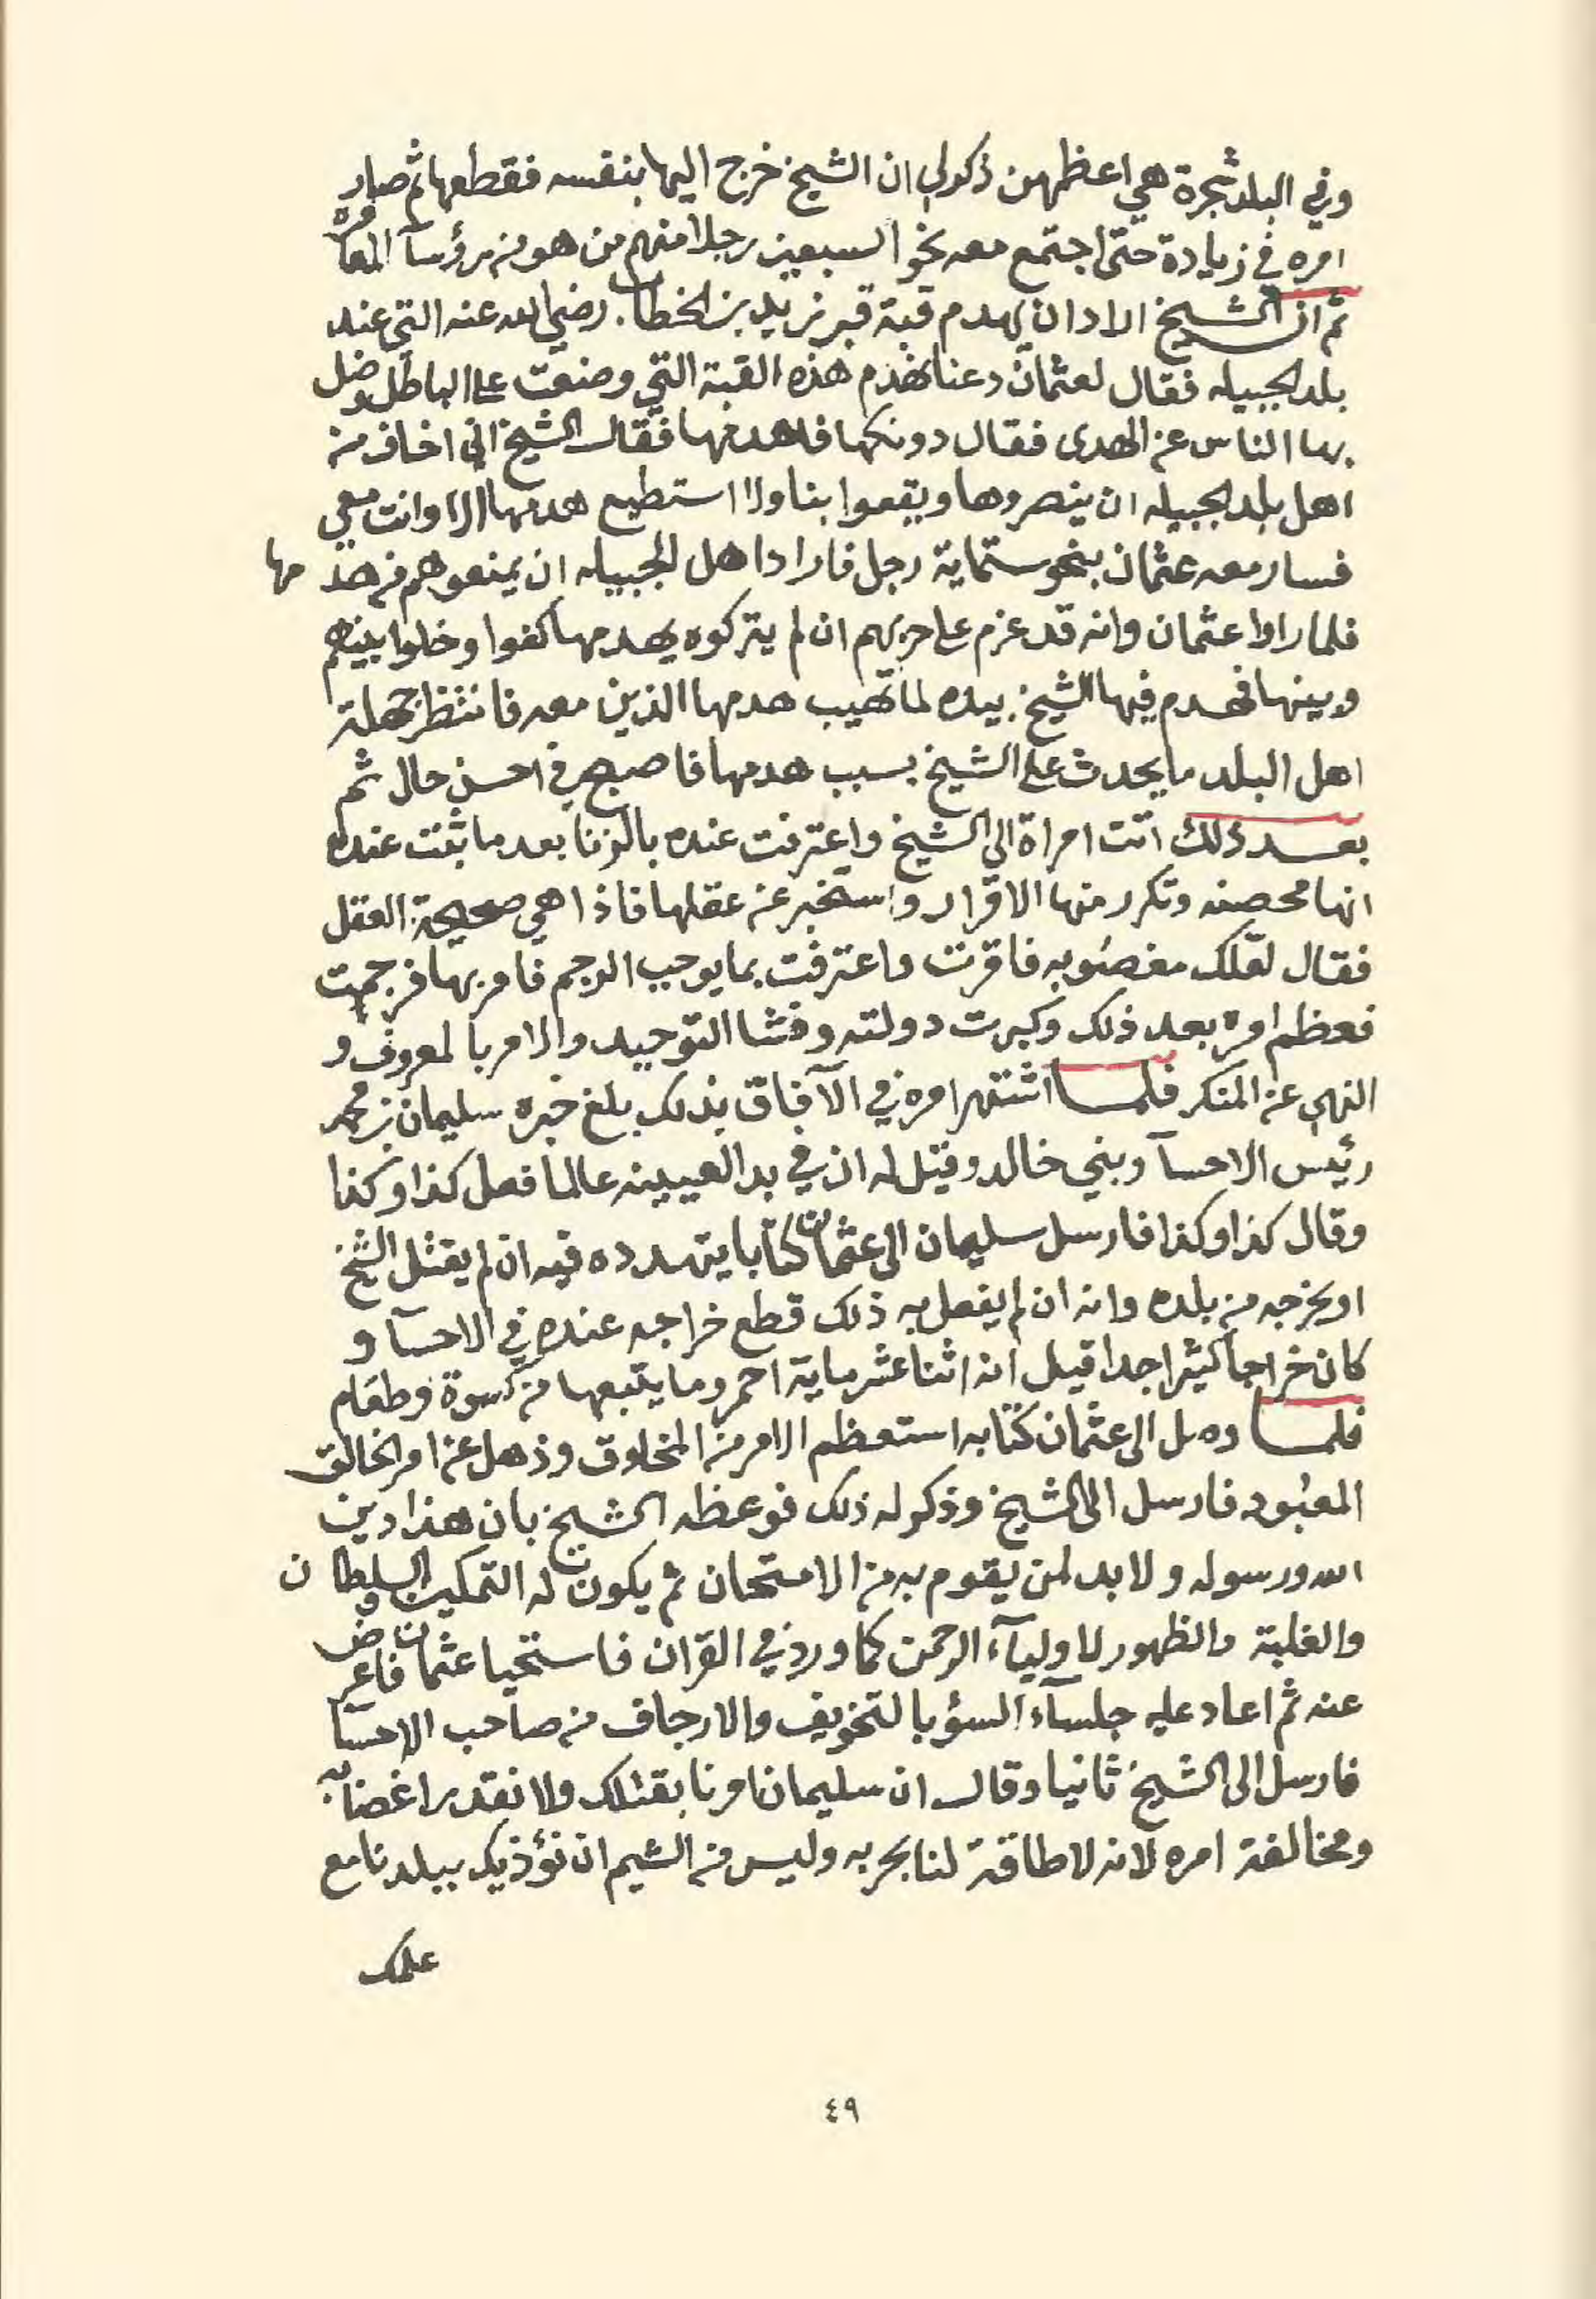 وفي البلد شجرة هي اعظمهن ذكر لي ان الشيخ خرج اليها بنفسه فقطعها ثم صار
امره في زيادة حتى اجتمع معه نحو السبعين رجلا منهم من هو من رؤسآ المعامره
ثم ان الشيخ اراد ان يهدم قبة قبر زيد بن الخطاب رضي الله عنه التي عند
بلد الجبيله فقال لعثمان دعنا نهدم هذه القبة التي وضعت على الباطل وضل
بها الناس عن الهدى فقال دونكها فاهدمها فقال الشيخ اني اخاف من
اهل بلد الجبيله ان ينصروها ويقعوا بنا ولا استطيع هدمها الا وانت معي
فسار معه عثمان بنحو ستماية رجل فاراد اهل الجبيله ان يمنعوهم من هدمها
فلما راوا عثمان وانه قد عزم على حربهم ان لم يتركوه يهدمها كفوا وخلوا بينهم
وبينها فهدم فيها الشيخ بيده لما تهيب هدمها الذين معه فانتظر جهلة
اهل البلد ما يحدث على الشيخ بسبب هدمها فاصبح في احسن حال ثم
بعد ذلك اتت امراة الى الشيخ واعترفت عنده بالزنا بعد ما ثبت عنده
انها محصنه وتكرر منها الاقرار واستخبر عن عقلها فاذا هي صحيحة العقل
فقال لعلك مغصوبه فاقرت واعترفت بما يوجب الرجم فامر بها فرجمت
فعظم امره بعد ذلك وكبرت دولته وفشا التوحيد والامر بالمعروف و
النهي عن المنكر فلما اشتهر امره في الآفاق بذلك بلغ خبره سليمان بن محمد
رئيس الاحسآ وبني خالد وقيل له ان في بد العيينه عالما فعل كذا وكذا
وقال كذا وكذا فارسل سليمان الى عثمان كتابا يتهدده فيه ان لم يقتل الشيخ
او يخرجه من بلده وانه ان لم يفعل به ذلك قطع خراجه عنده في الاحسآ و
كان خراجا كثيرا جدا قيل انه اثنا عشر ماية احمر وما يتبعها من كسوة وطعام
فلما وصل الى عثمان كتابه استعظم الامر من المخلوق وذهل عن امر الخالق
المعبود فارسل الى الشيخ وذكر له ذلك فوعظه الشيخ بان هذا دين
الله ورسوله ولا بد لمن يقوم به من الامتحان ثم يكون له التمكين والسلطان
والغلبة والظهور لاوليآء الرحمن كما ورد في القران فاستحيا عثمان فاعرض
عنه ثم اعاد عليه جلسآء السؤ بالتخويف والارجاف من صاحب الاحسآ
فارسل الى الشيخ ثانيا وقال ان سليمان امرنا بقتلك ولا نقدر اغضابه
ومخالفة امره لانه لا طاقة لنا بحربه وليس من الشيم ان نؤذيك ببلدنا مع
علمك
٤٩